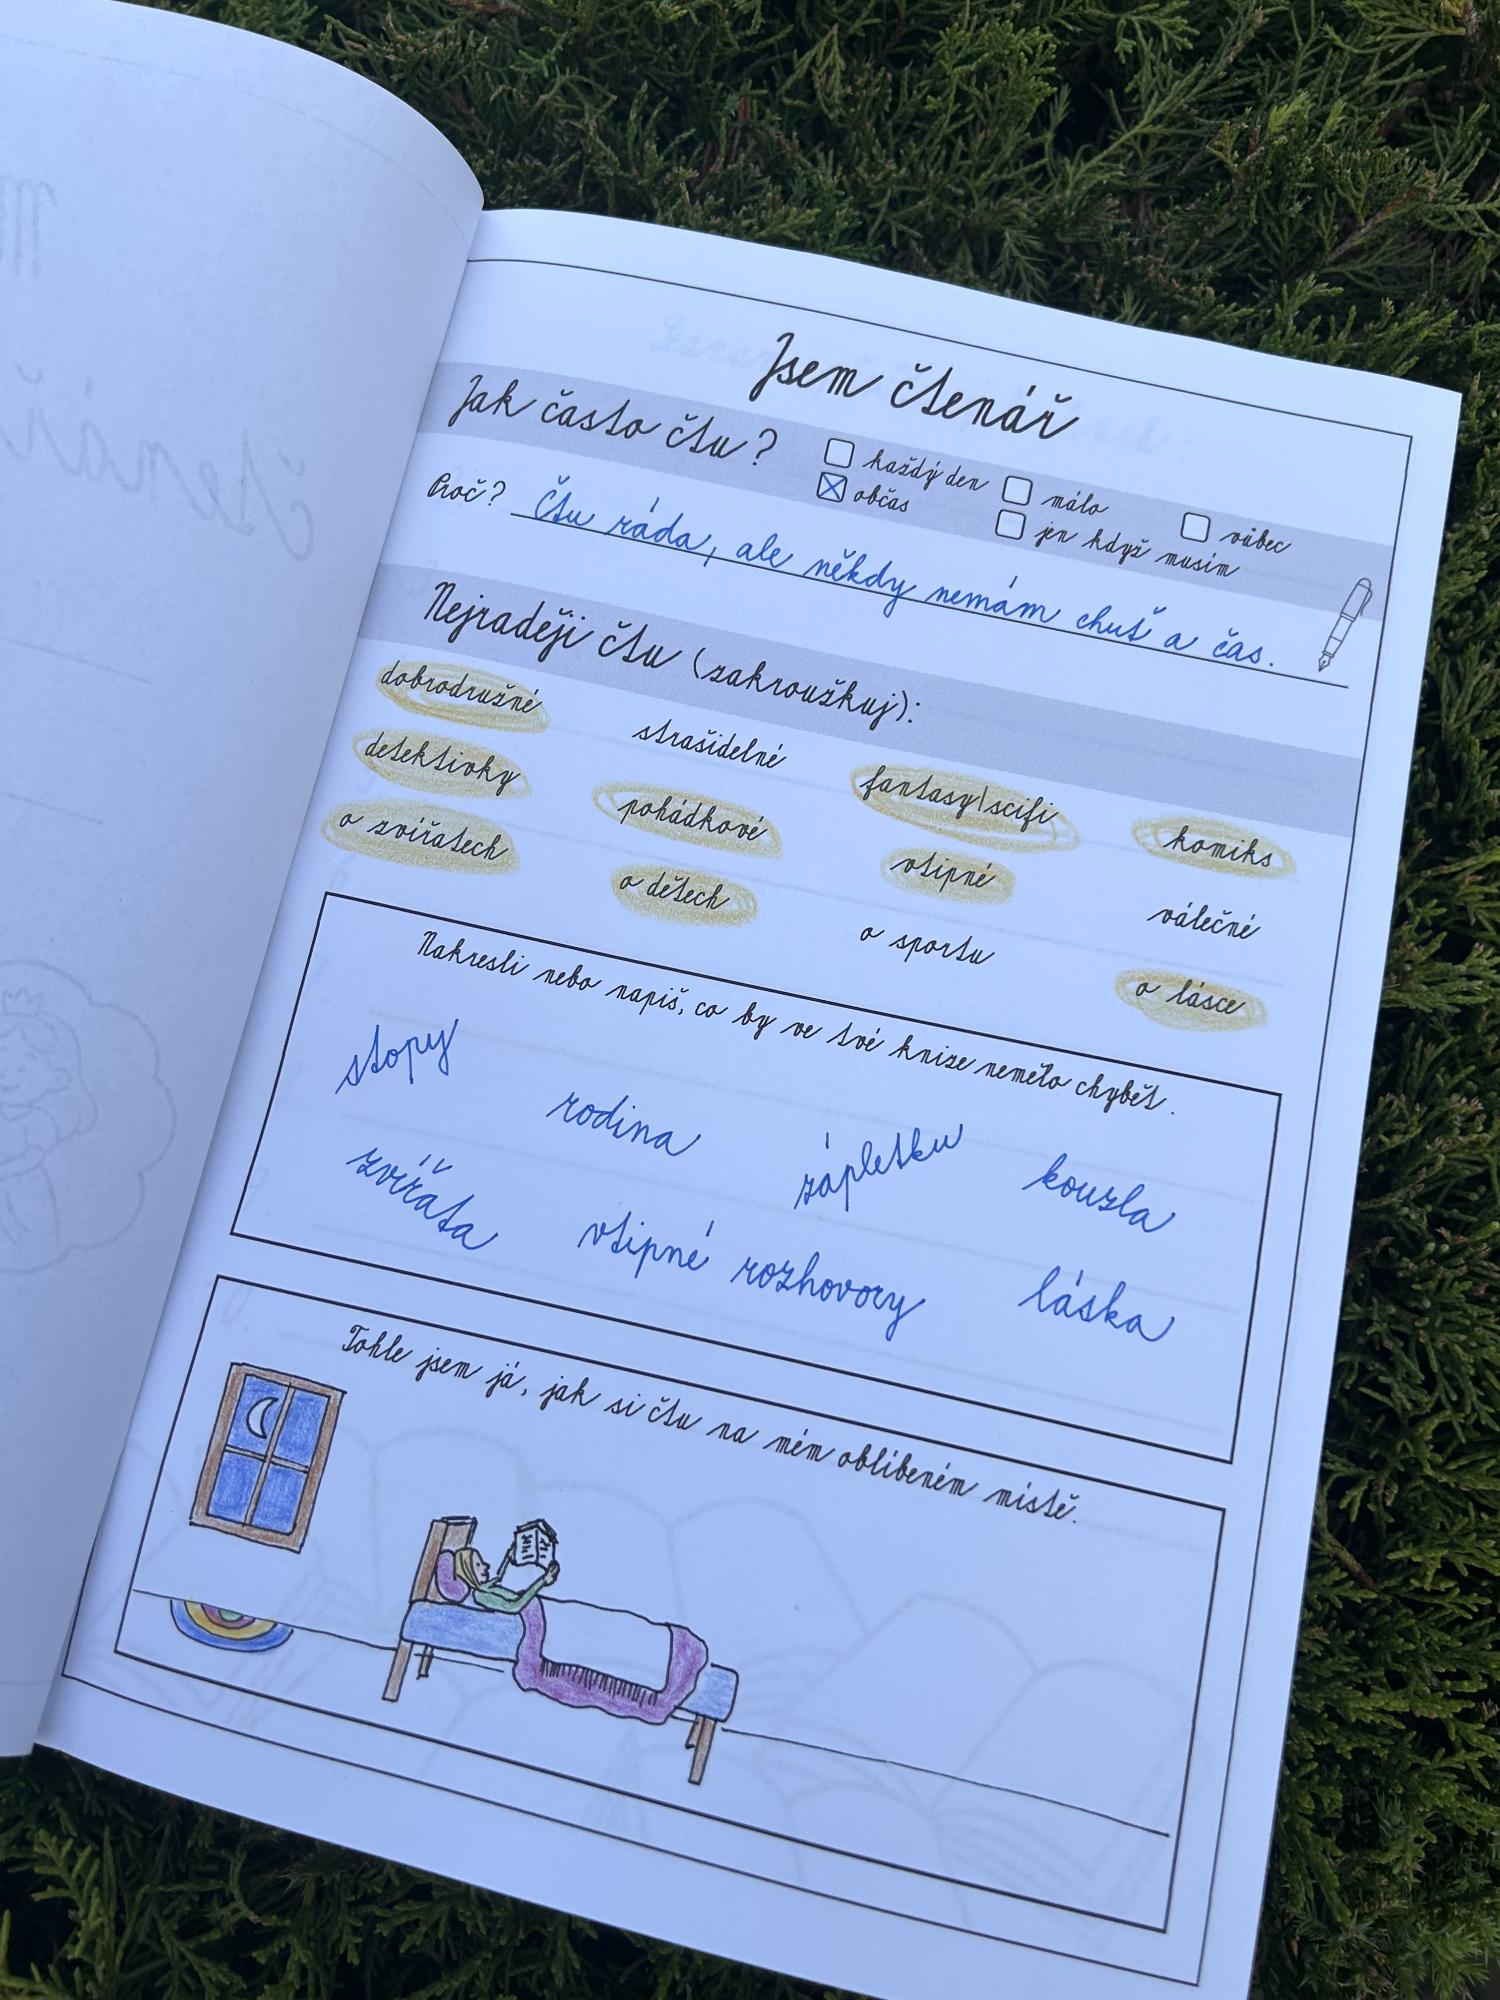 Jsem čtenář
Jak často čtu?
každý den
málo
vůbec
občas
jen když musím
Proč? Čtu ráda, ale někdy nemám chuť a čas.
Nejraději čtu (zakroužkuj):
dobrodružné
strašidelné
fantasy\scifi
komiks
detektivky
pohádkové
vtipné
válečné
o zvířatech
o dětech
o sportu
o lásce
Nakresli nebo napiš, co by ve tvé knize nemělo chybět.
stopy
rodina
zápletku
kouzla
zvířata
vtipné rozhovory
láska
Tohle jsem já, jak si čtu na mém oblíbeném místě.
čtenář